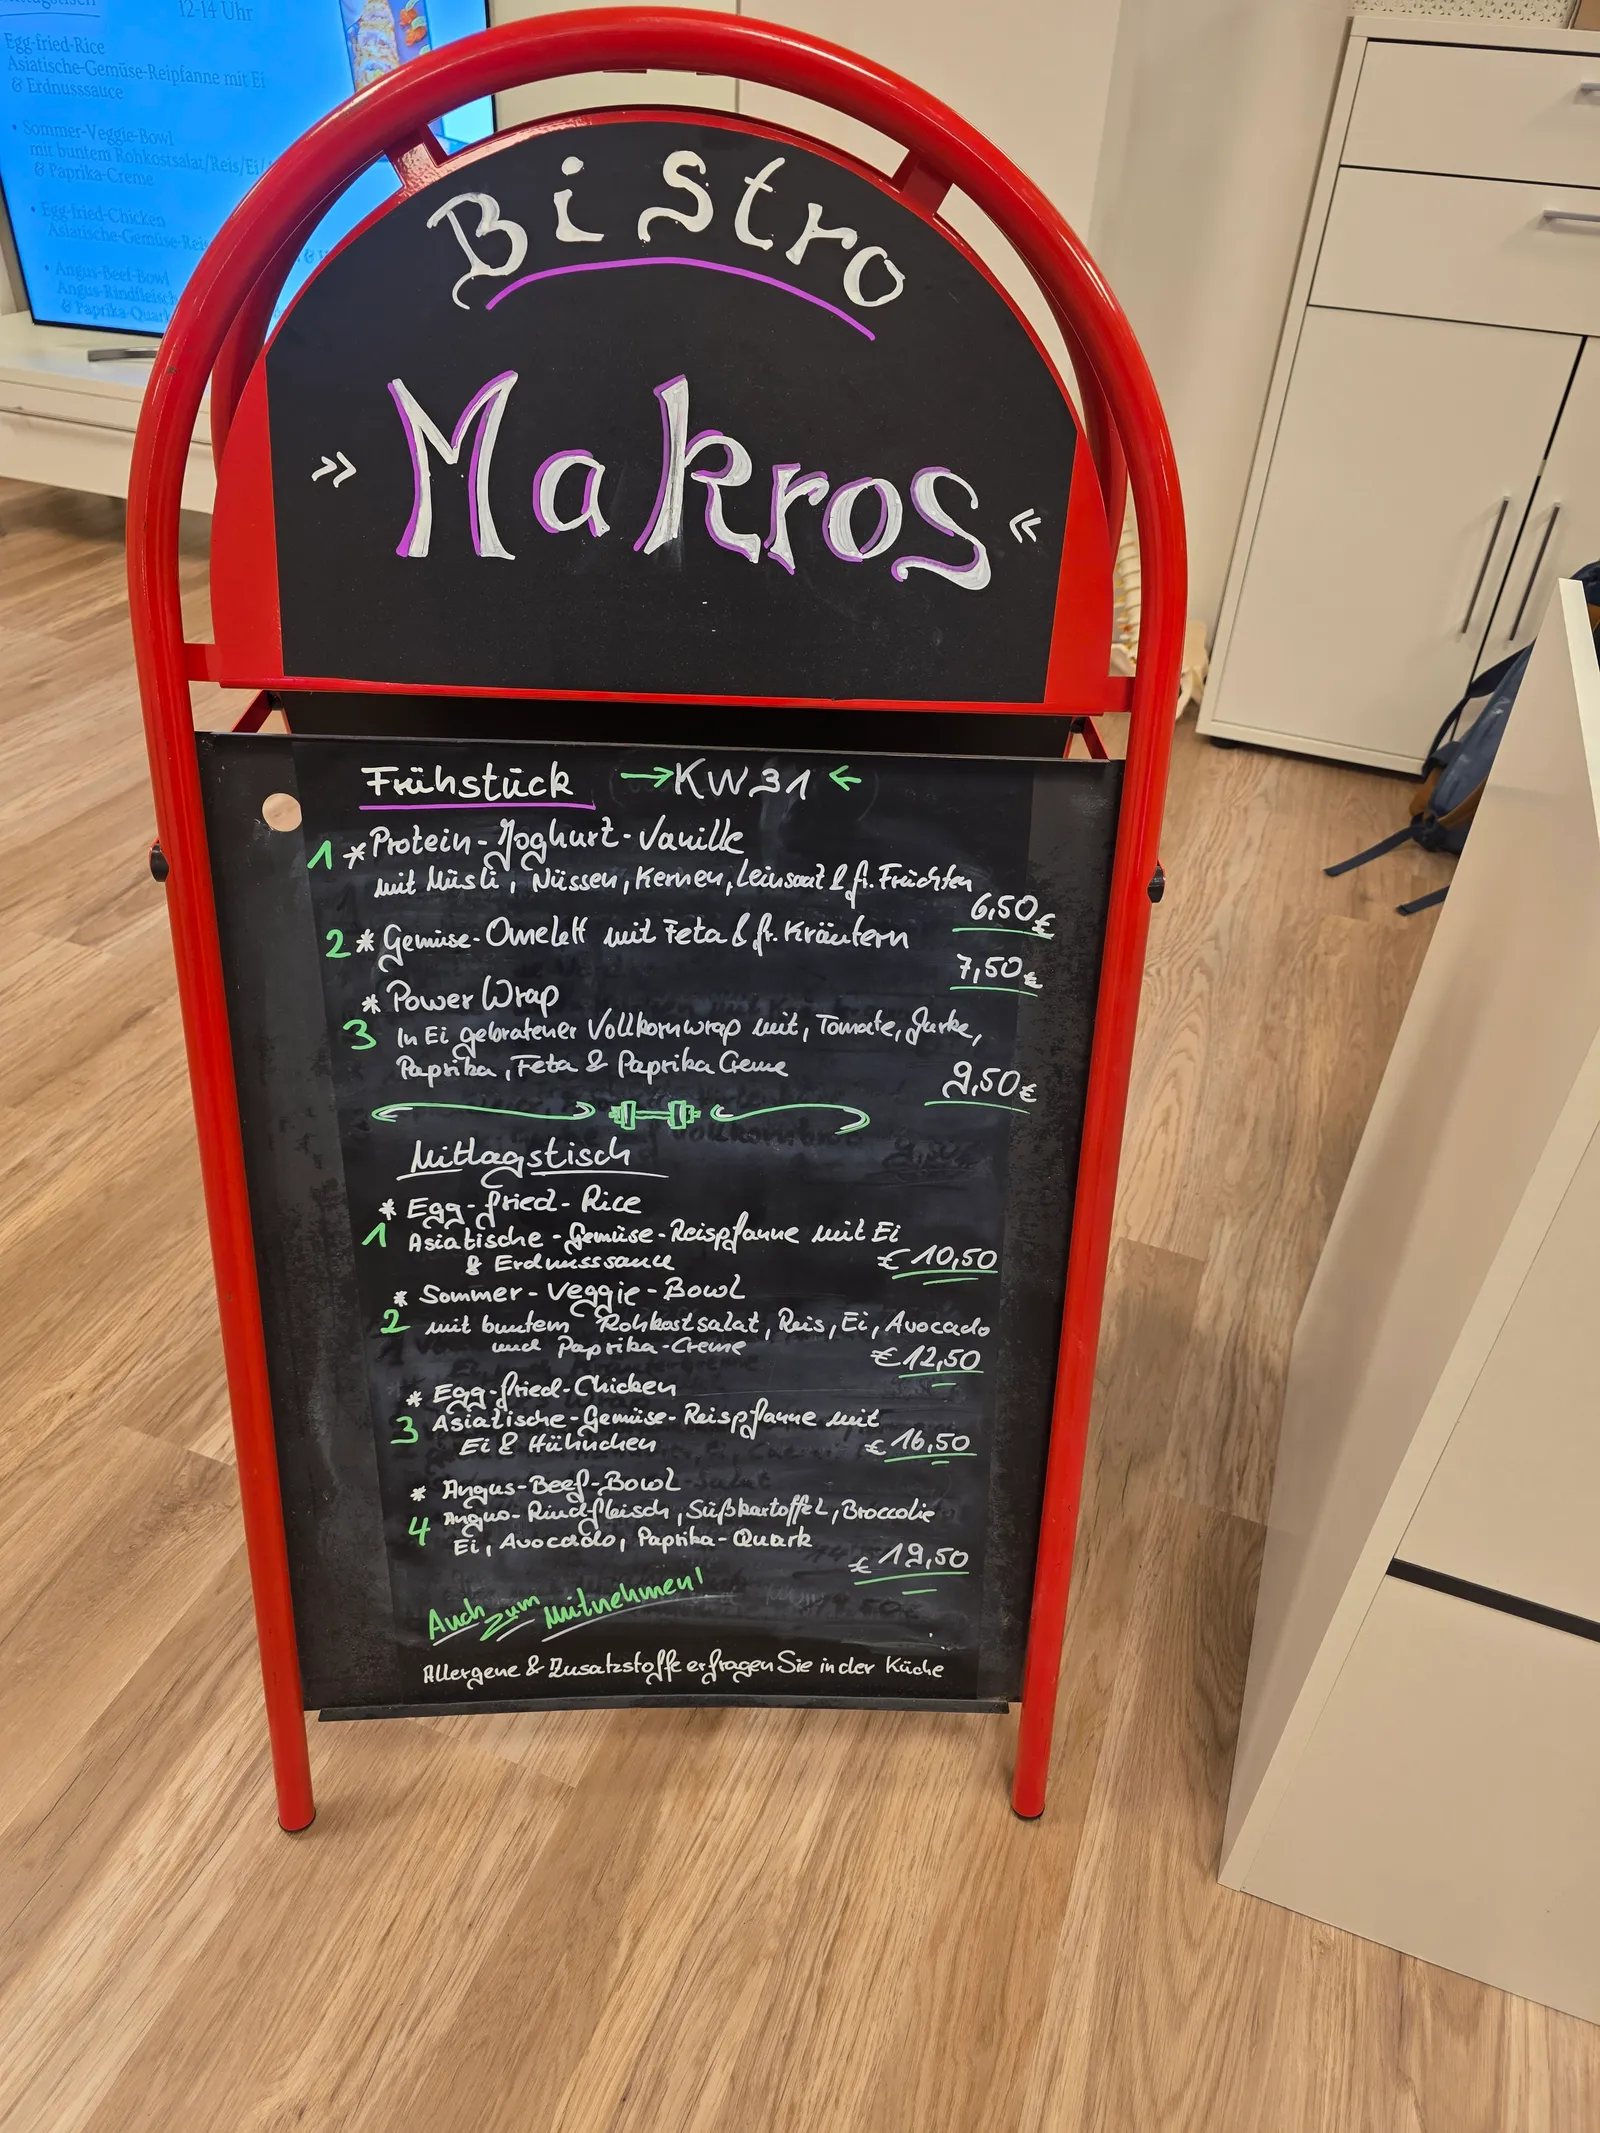 12-14 Uhr
Egg-fried-Rice
Asiatische-Gemüse-Reipfanne mit Ei
& Erdnusssauce
• Sommer-Veggie-Bowl
mit buntem Rohkostsalat/Reis/Ei/
& Paprika-Creme
• Egg-fried-Chicken
Asiatische-Gemüse-Reis
• Angus-Beef-Bowl
Angus-Rindfleisch
& Paprika-Quark
Bistro
» Makros «
Frühstück → KW31 ←
1 * Protein-Joghurt-Vanille
mit Müsli, Nüssen, Kernen, Leinsaat & fr. Früchten
6,50€
2 * Gemüse-Omelett mit Feta & fr. Kräutern
7,50€
* Power Wrap
3 In Ei gebratener Vollkornwrap mit, Tomate, Gurke,
Paprika, Feta & Paprika Creme
9,50€
Mittagstisch
* Egg-fried-Rice
1 Asiatische-Gemüse-Reispfanne mit Ei
& Erdnusssauce
€ 10,50
* Sommer-Veggie-Bowl
2 mit buntem Rohkostsalat, Reis, Ei, Avocado
und Paprika-Creme
€ 12,50
* Egg-fried-Chicken
3 Asiatische-Gemüse-Reispfanne mit
Ei & Hühnchen
€ 16,50
* Angus-Beef-Bowl
4 Angus-Rindfleisch, Süßkartoffel, Broccolie
Ei, Avocado, Paprika-Quark
€ 19,50
Auch zum mitnehmen!
Allergene & Zusatzstoffe erfragen Sie in der Küche